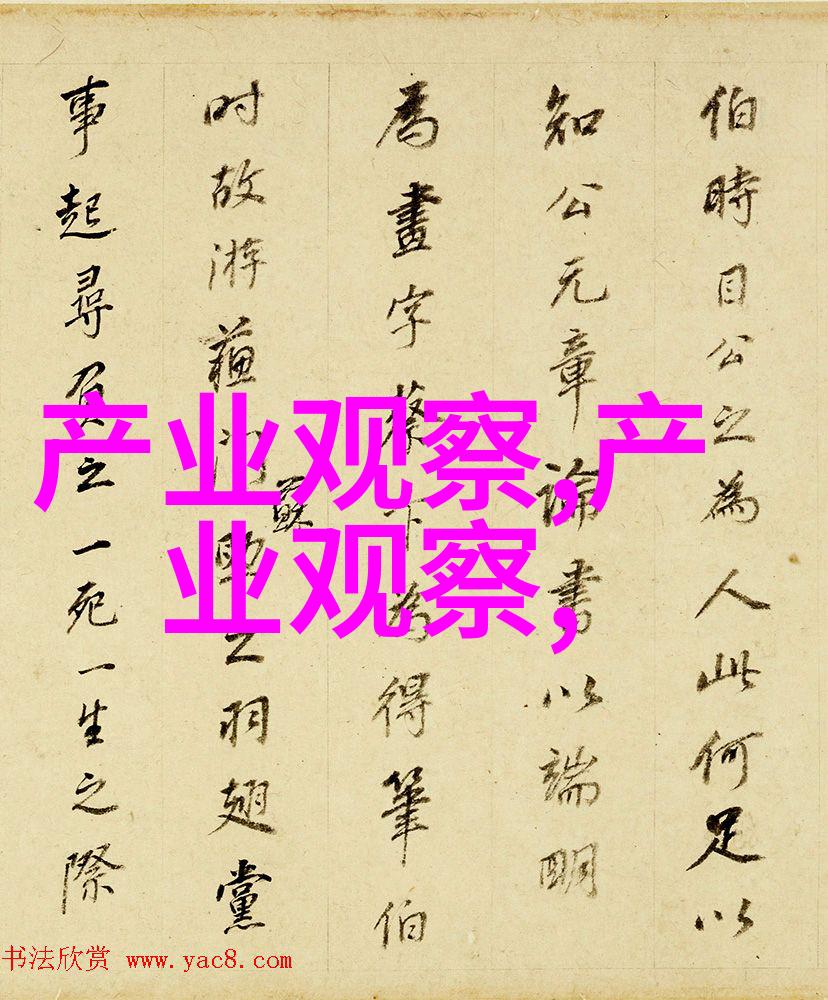 伯時目公之為人此何足以
知公元章論書以端明
為畫字蔡卞為得筆伯
时故游蘓門之羽翅黨
蘇
事起尋負之一死一生之際
产业观察,产
业观察,
书法欣赏 www.yac8.com